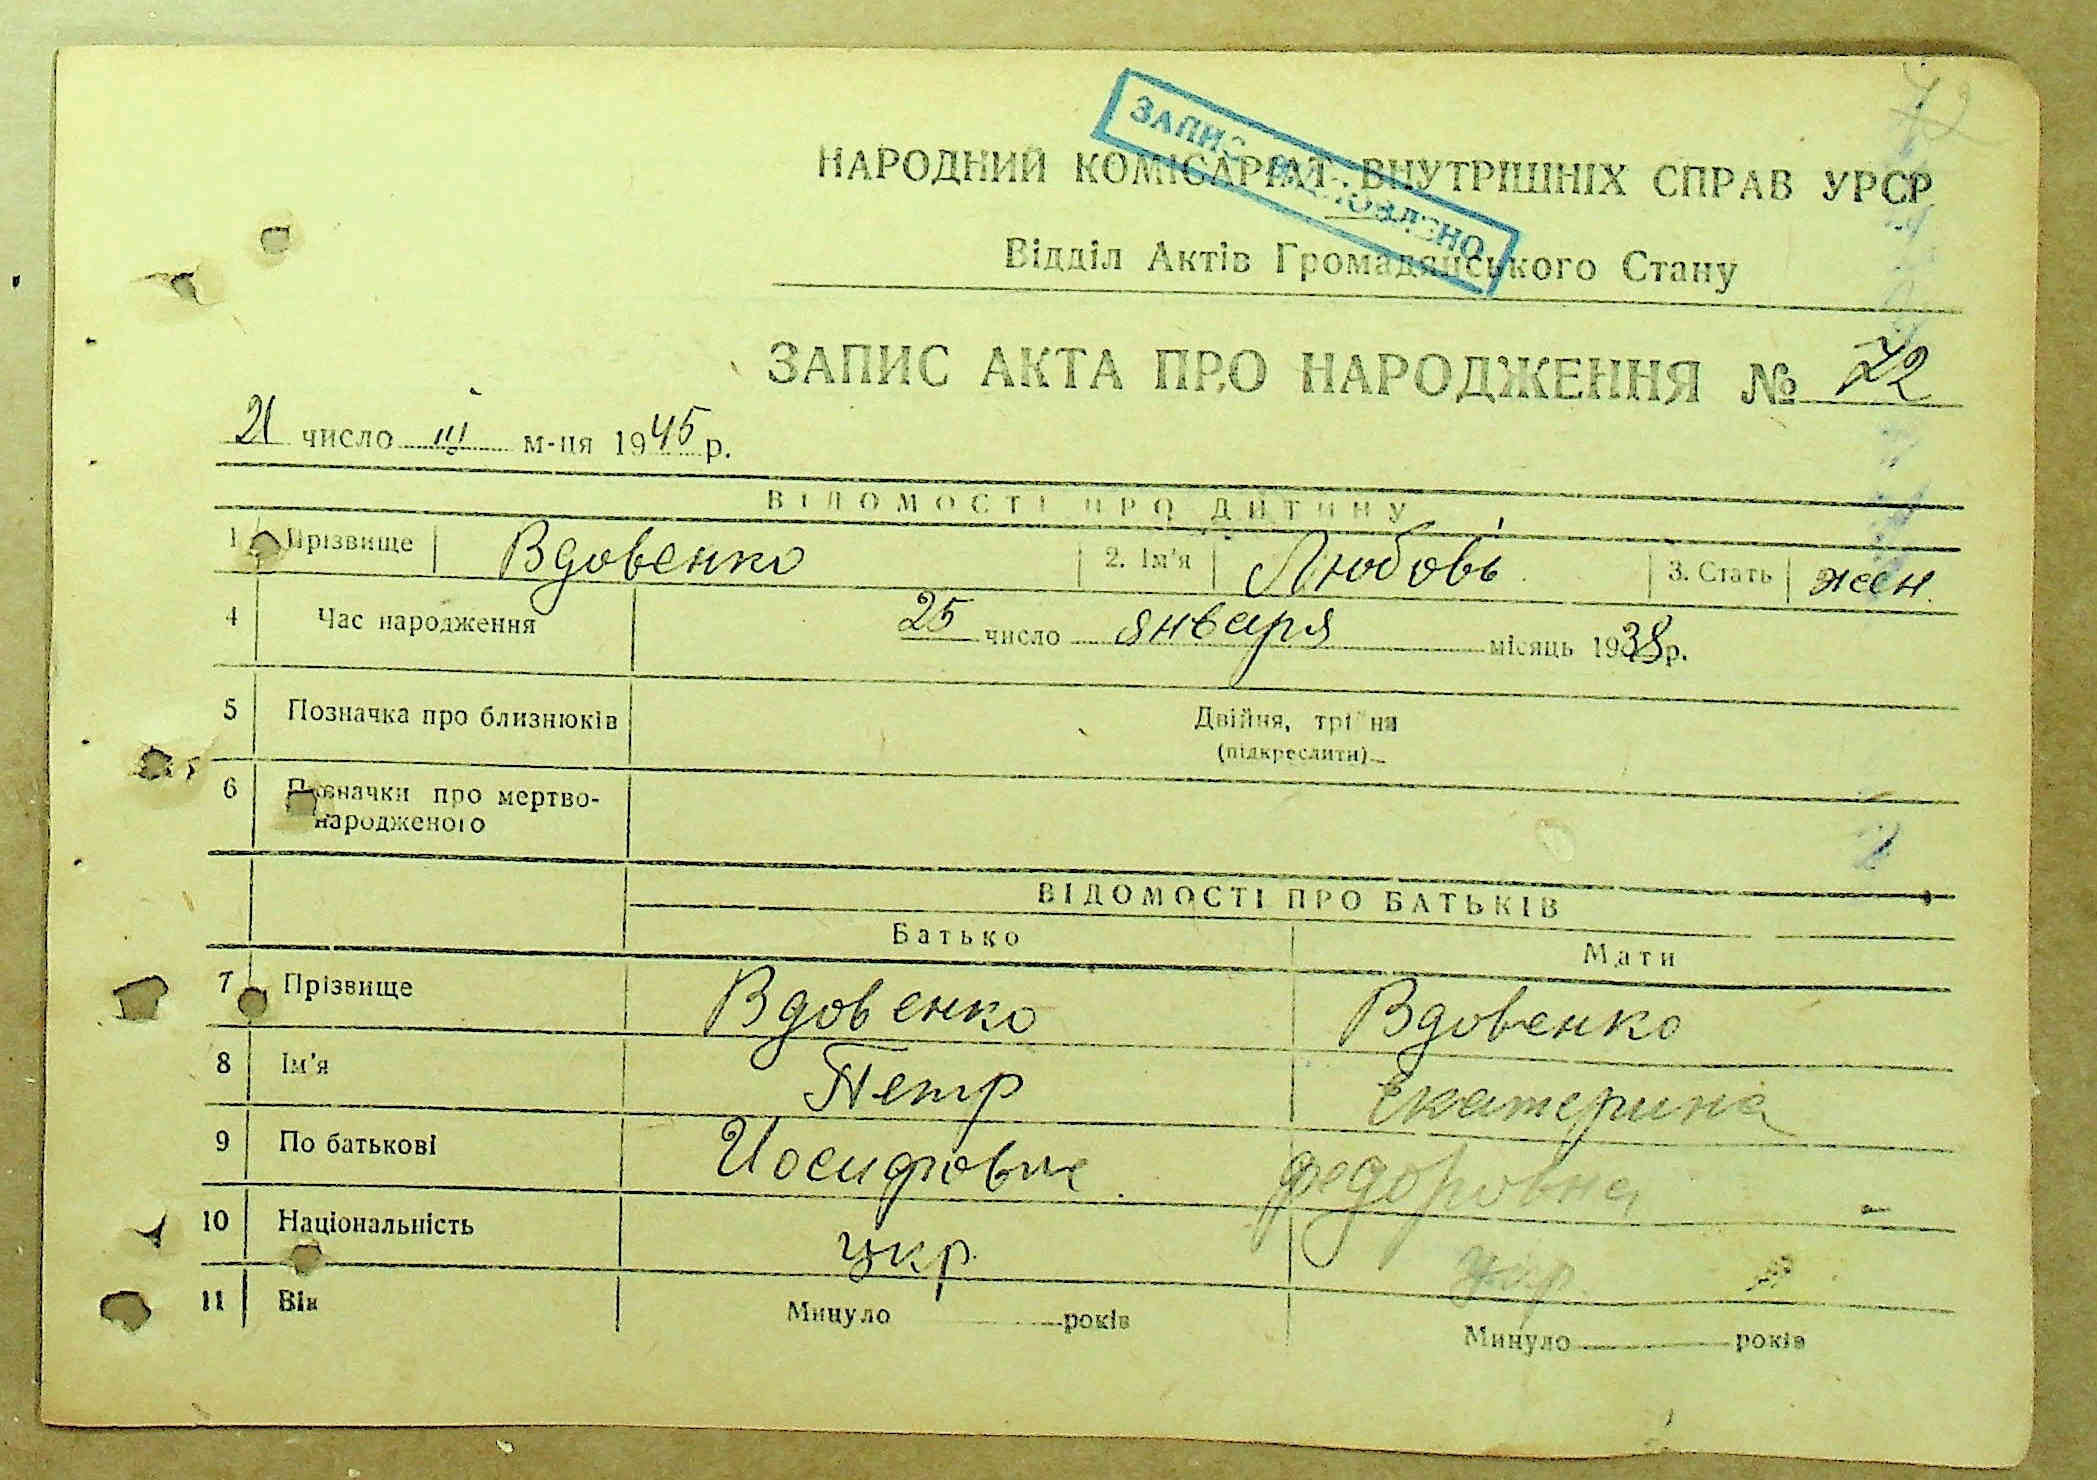 ЗАПИС ВІДНОВЛЕНО
НАРОДНИЙ КОМІСАРІАТ ВНУТРІШНІХ СПРАВ УРСР
Відділ Актів Громадянського Стану
ЗАПИС АКТА ПРО НАРОДЖЕННЯ № 72
21 число III м-ця 1945 р.
ВІДОМОСТІ ПРО ДИТИНУ
1 Прізвище Вдовенко 2. Ім'я Любовь 3. Стать жен.
4 Час народження 25 число января місяць 1938 р.
5 Позначка про близнюків Двійня, трійня
(підкреслити)
6 Позначки про мертво-
народженого
ВІДОМОСТІ ПРО БАТЬКІВ
Батько Мати
7 Прізвище Вдовенко Вдовенко
8 Ім'я Петр Екатерина
9 По батькові Иосифович Федоровна
10 Національність укр. укр.
11 Вік Минуло років Минуло років